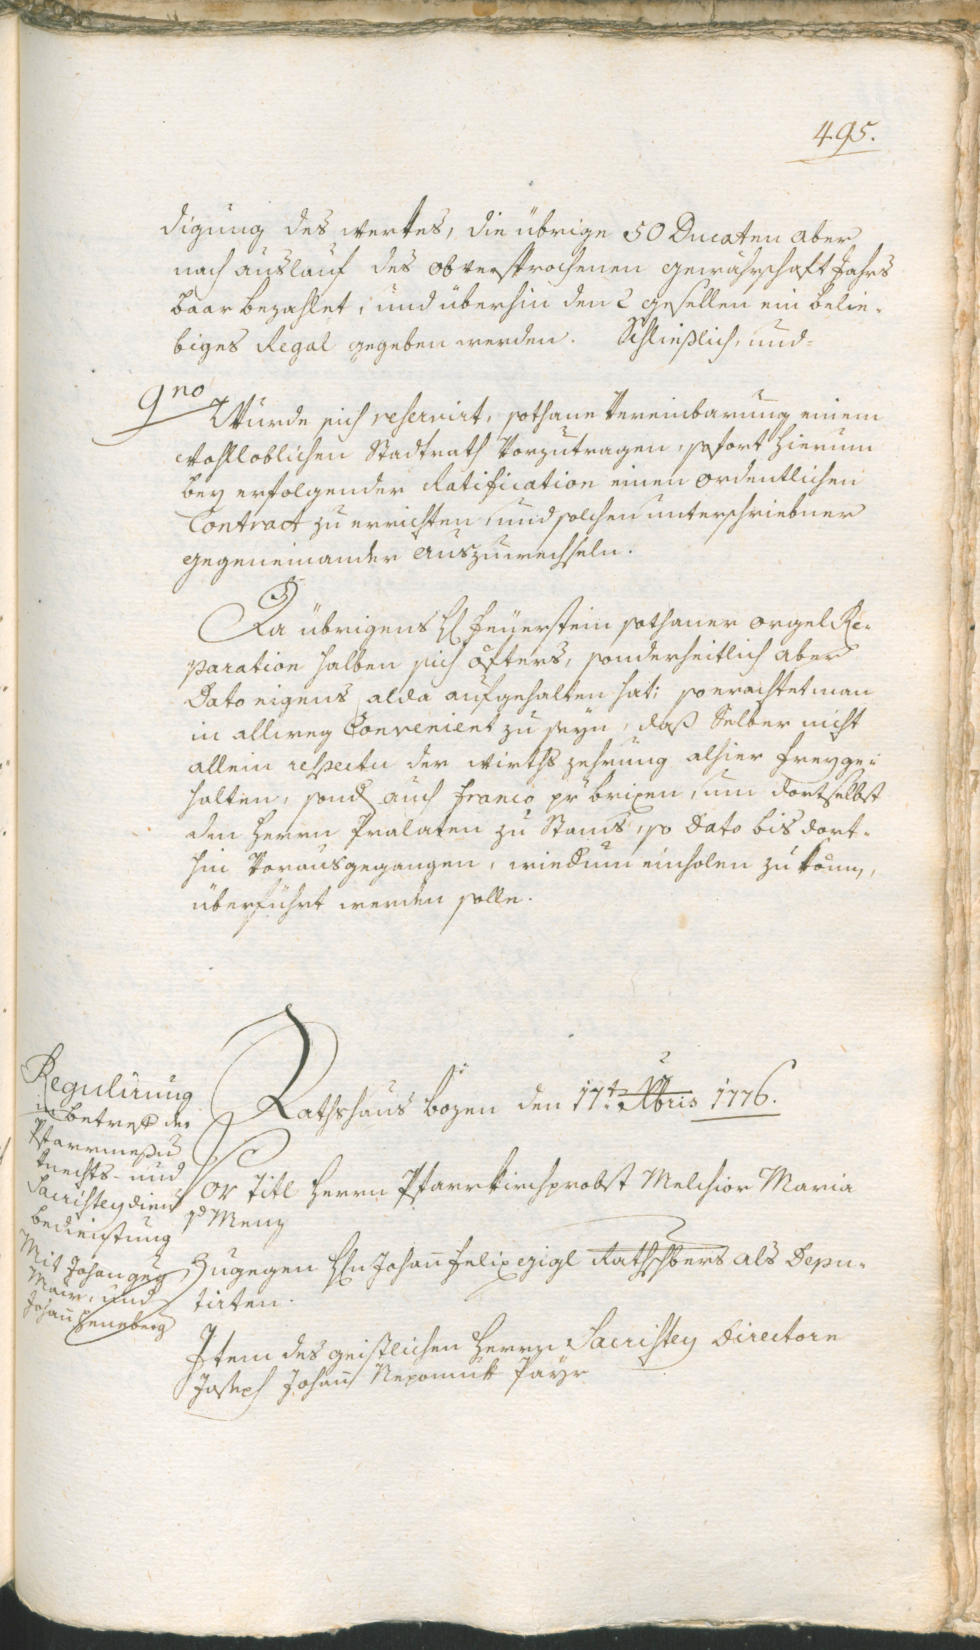 495.
digung des werkes, die übrige 50 Ducaten aber
nach auslauf des obversprochenen gewährschaft Jahrs
baar bezahlet, und überhin den 2 gesellen ein belie-
biges Regal gegeben werden. Schließlich, und-
9no Würde sich reservirt, sothane Vereinbarung einem
wohlloblichen Stadtrath Vorzutragen, sofort hierum
bey erfolgender Ratification einen ordentlichen
Contract zu errichten, und solchen unterschriebner
gegeneinander auszuwechseln.
Da übrigens H Feüerstein sothaner orgel Re-
paration halben sich öfters, sonderheitlich aber
Dato eigens alda aufgehalten hat; so erachtet man
in allweg Convenient zu seyn, daß Selber nicht
allein respectu der wirths zehrung alhier freyge-
halten, sond auch franco pr brixen, um dortselbst
den Herrn Pralaten zu Stams, so Dato bis dort-
hin Vorausgegangen, wiedum einholen zu könn,
überführt werden solle.
Regulirung
in betref der
Pfarrmeßn
knechts- und
Sacristeydiens
bedienstung
Mit Johan
Mair, und
Johan
Rathshaus bozen den 17t Xbris 1776.
Vor Titl Herrn Pfarrkirchprobst Melchior Maria
v Menz
Zugegen Hn Johann Felix gigl Rathsfhbers als Depu-
tirten.
Item des geistlichen Herrn Sacristey Directorn
Joseph Johann Nepomuk Payr